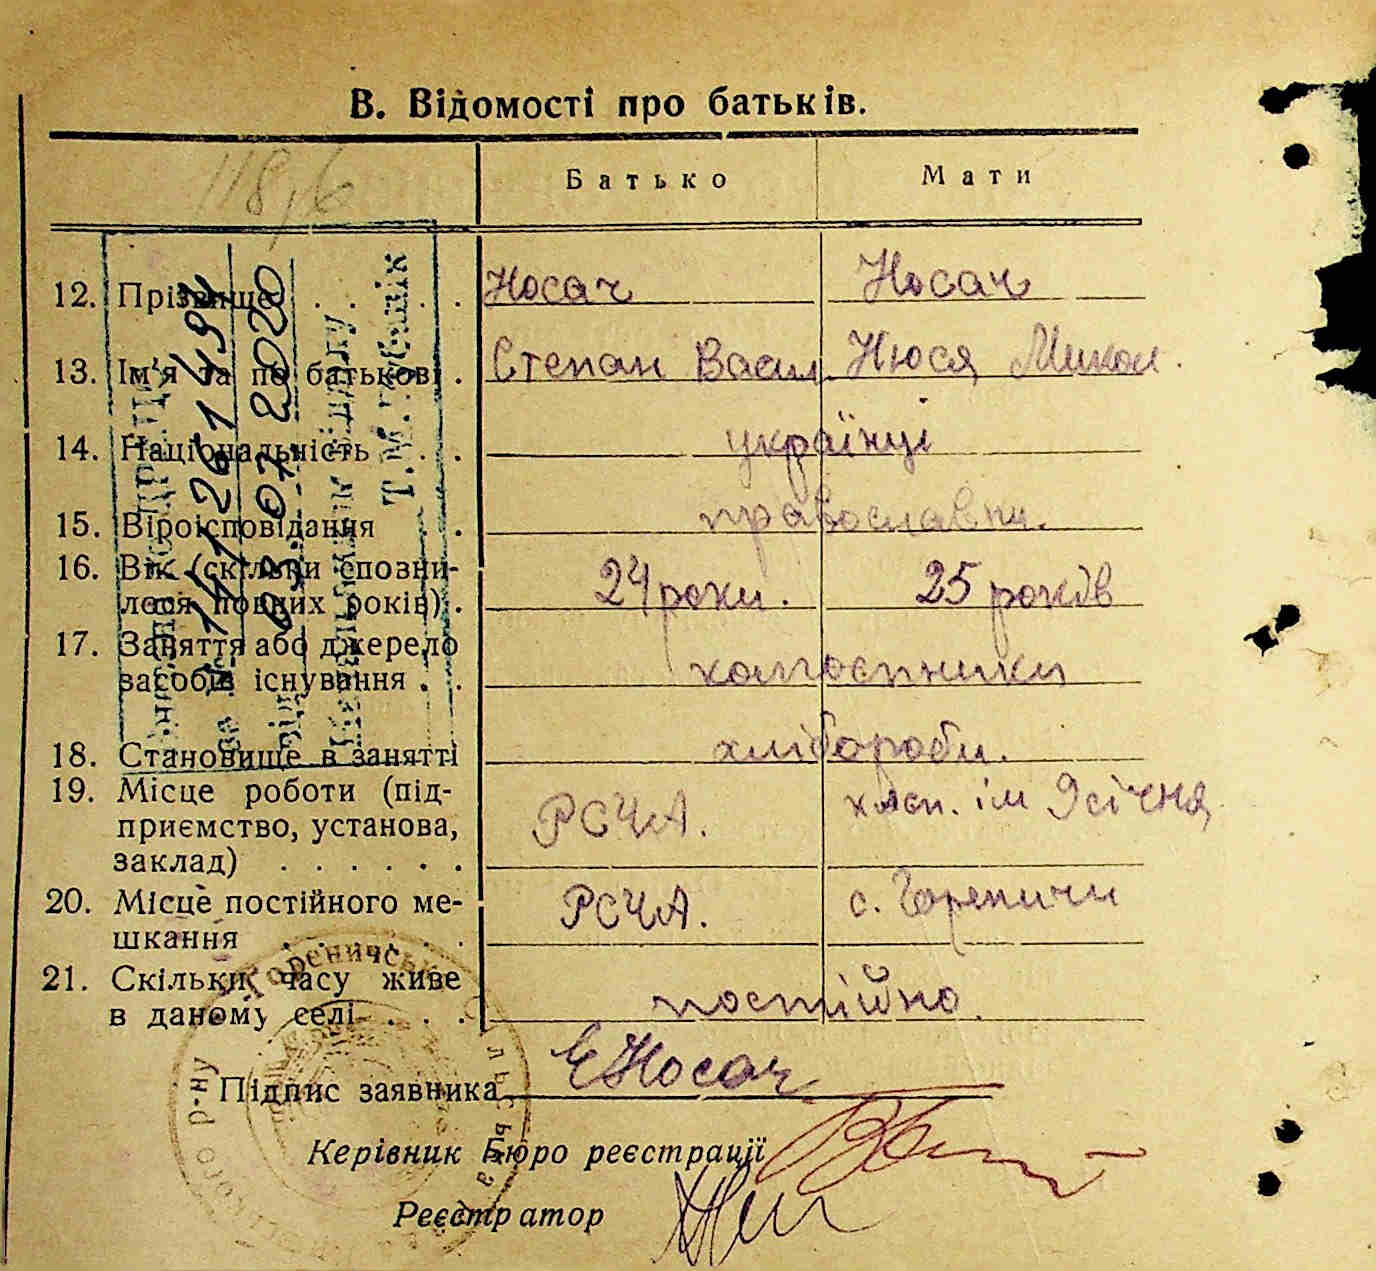 В. Відомості про батьків.
118, б
Батько Мати
12. Прізвище . . . . . Носач Носач
13. Ім'я та по батькові . Степан Васил. Нюся Микол.
14. Національність . . . українці
15. Віроісповідання . . православні.
16. Вік (скільки сповни-
лося повних років) . 24 роки. 25 років
17. Заняття або джерело
засобів існування . . колгоспники
18. Становище в занятті хлібороби.
19. Місце роботи (під-
приємство, установа,
заклад) . . . . . . РСЧА. к/госп. ім 9 січня
20. Місце постійного ме-
шкання . . . . . РСЧА. с. Гореничи
21. Скільки часу живе
в даному селі . . . постійно.
Підпис заявника Носач
Керівник Бюро реєстрації
Реєстратор
за № 141 26 1 494
від 03. 07 2020
Начальник відділу
Т.М.
Гореничська сільська
р-ну